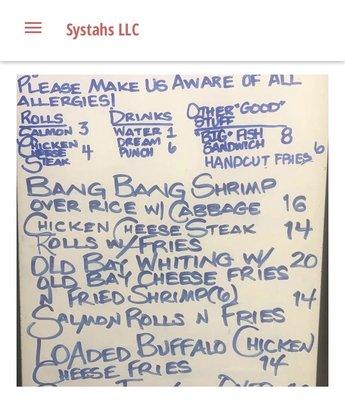 Systahs LLC
PLEASE MAKE US AWARE OF ALL
ALLERGIES!
ROLLS
SALMON 3
CHICKEN
CHEESE 4
STEAK
DRINKS
WATER 1
DREAM
PUNCH 6
OTHER "GOOD"
STUFF
"BIG" FISH
SANDWICH 8
HANDCUT FRIES 6
BANG BANG SHRIMP
OVER RICE W/ CABBAGE 16
CHICKEN CHEESE STEAK 14
ROLLS W/ FRIES
OLD BAY WHITING W/ 20
OLD BAY CHEESE FRIES
N FRIED SHRIMP(6)
SALMON ROLLS N FRIES 14
LOADED BUFFALO CHICKEN
CHEESE FRIES 14